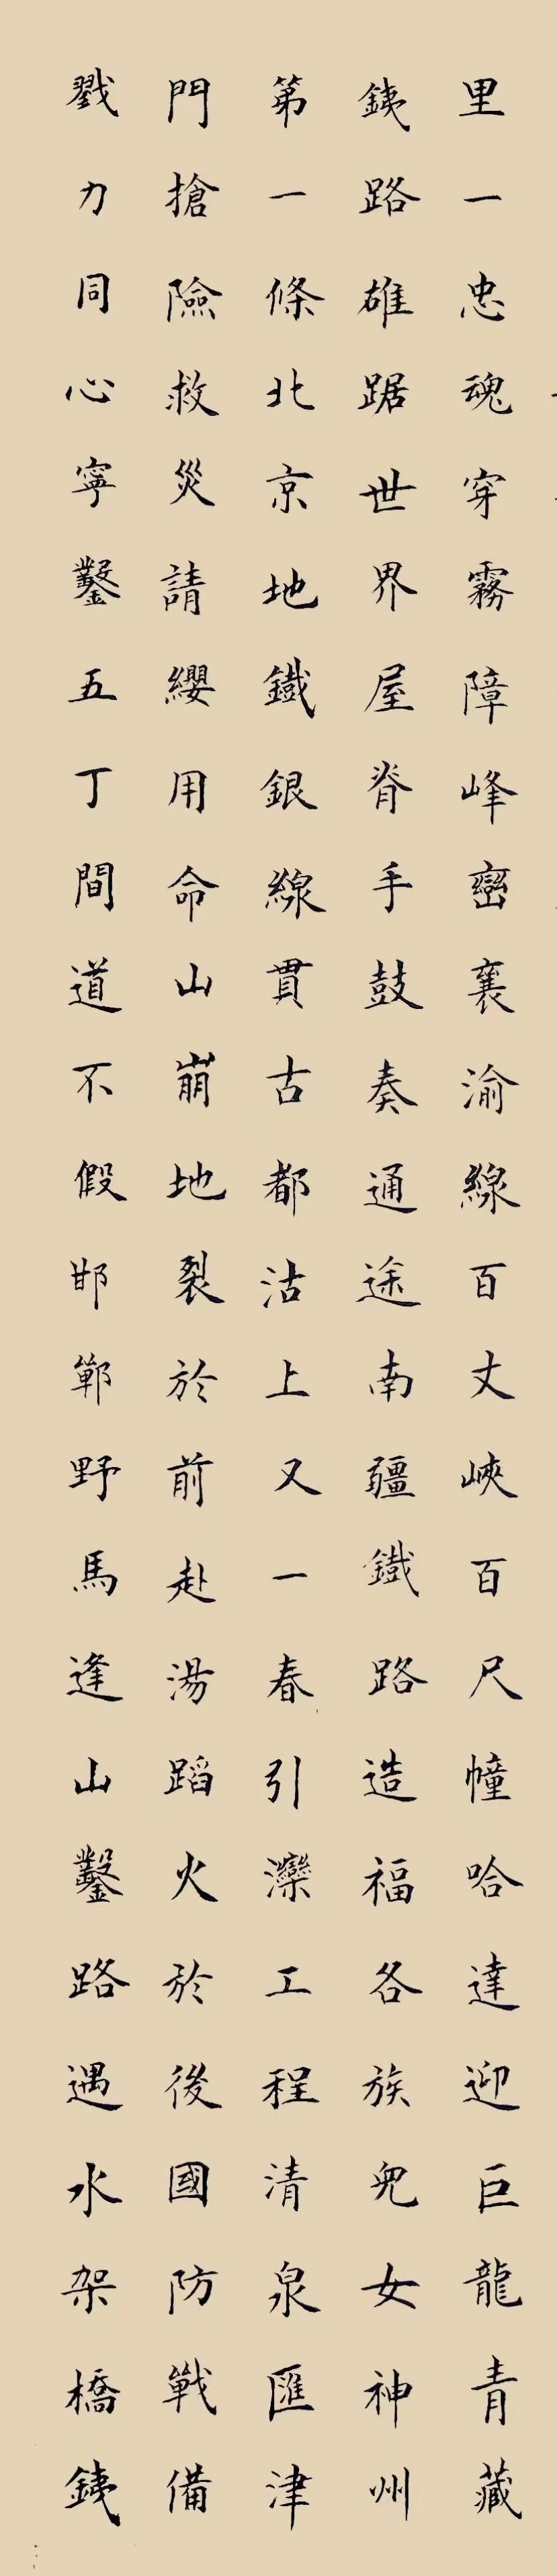 里一忠魂穿霧障峰巒襄渝線百丈峽百尺幢哈達迎巨龍青藏
銕路雄踞世界屋脊手鼓奏通途南疆鐵路造福各族兒女神州
第一條北京地鐵銀線貫古都沽上又一春引灤工程清泉匯津
門搶險救災請纓用命山崩地裂於前赴湯蹈火於後國防戰備
戮力同心寧鑿五丁間道不假邯鄲野馬逢山鑿路遇水架橋銕